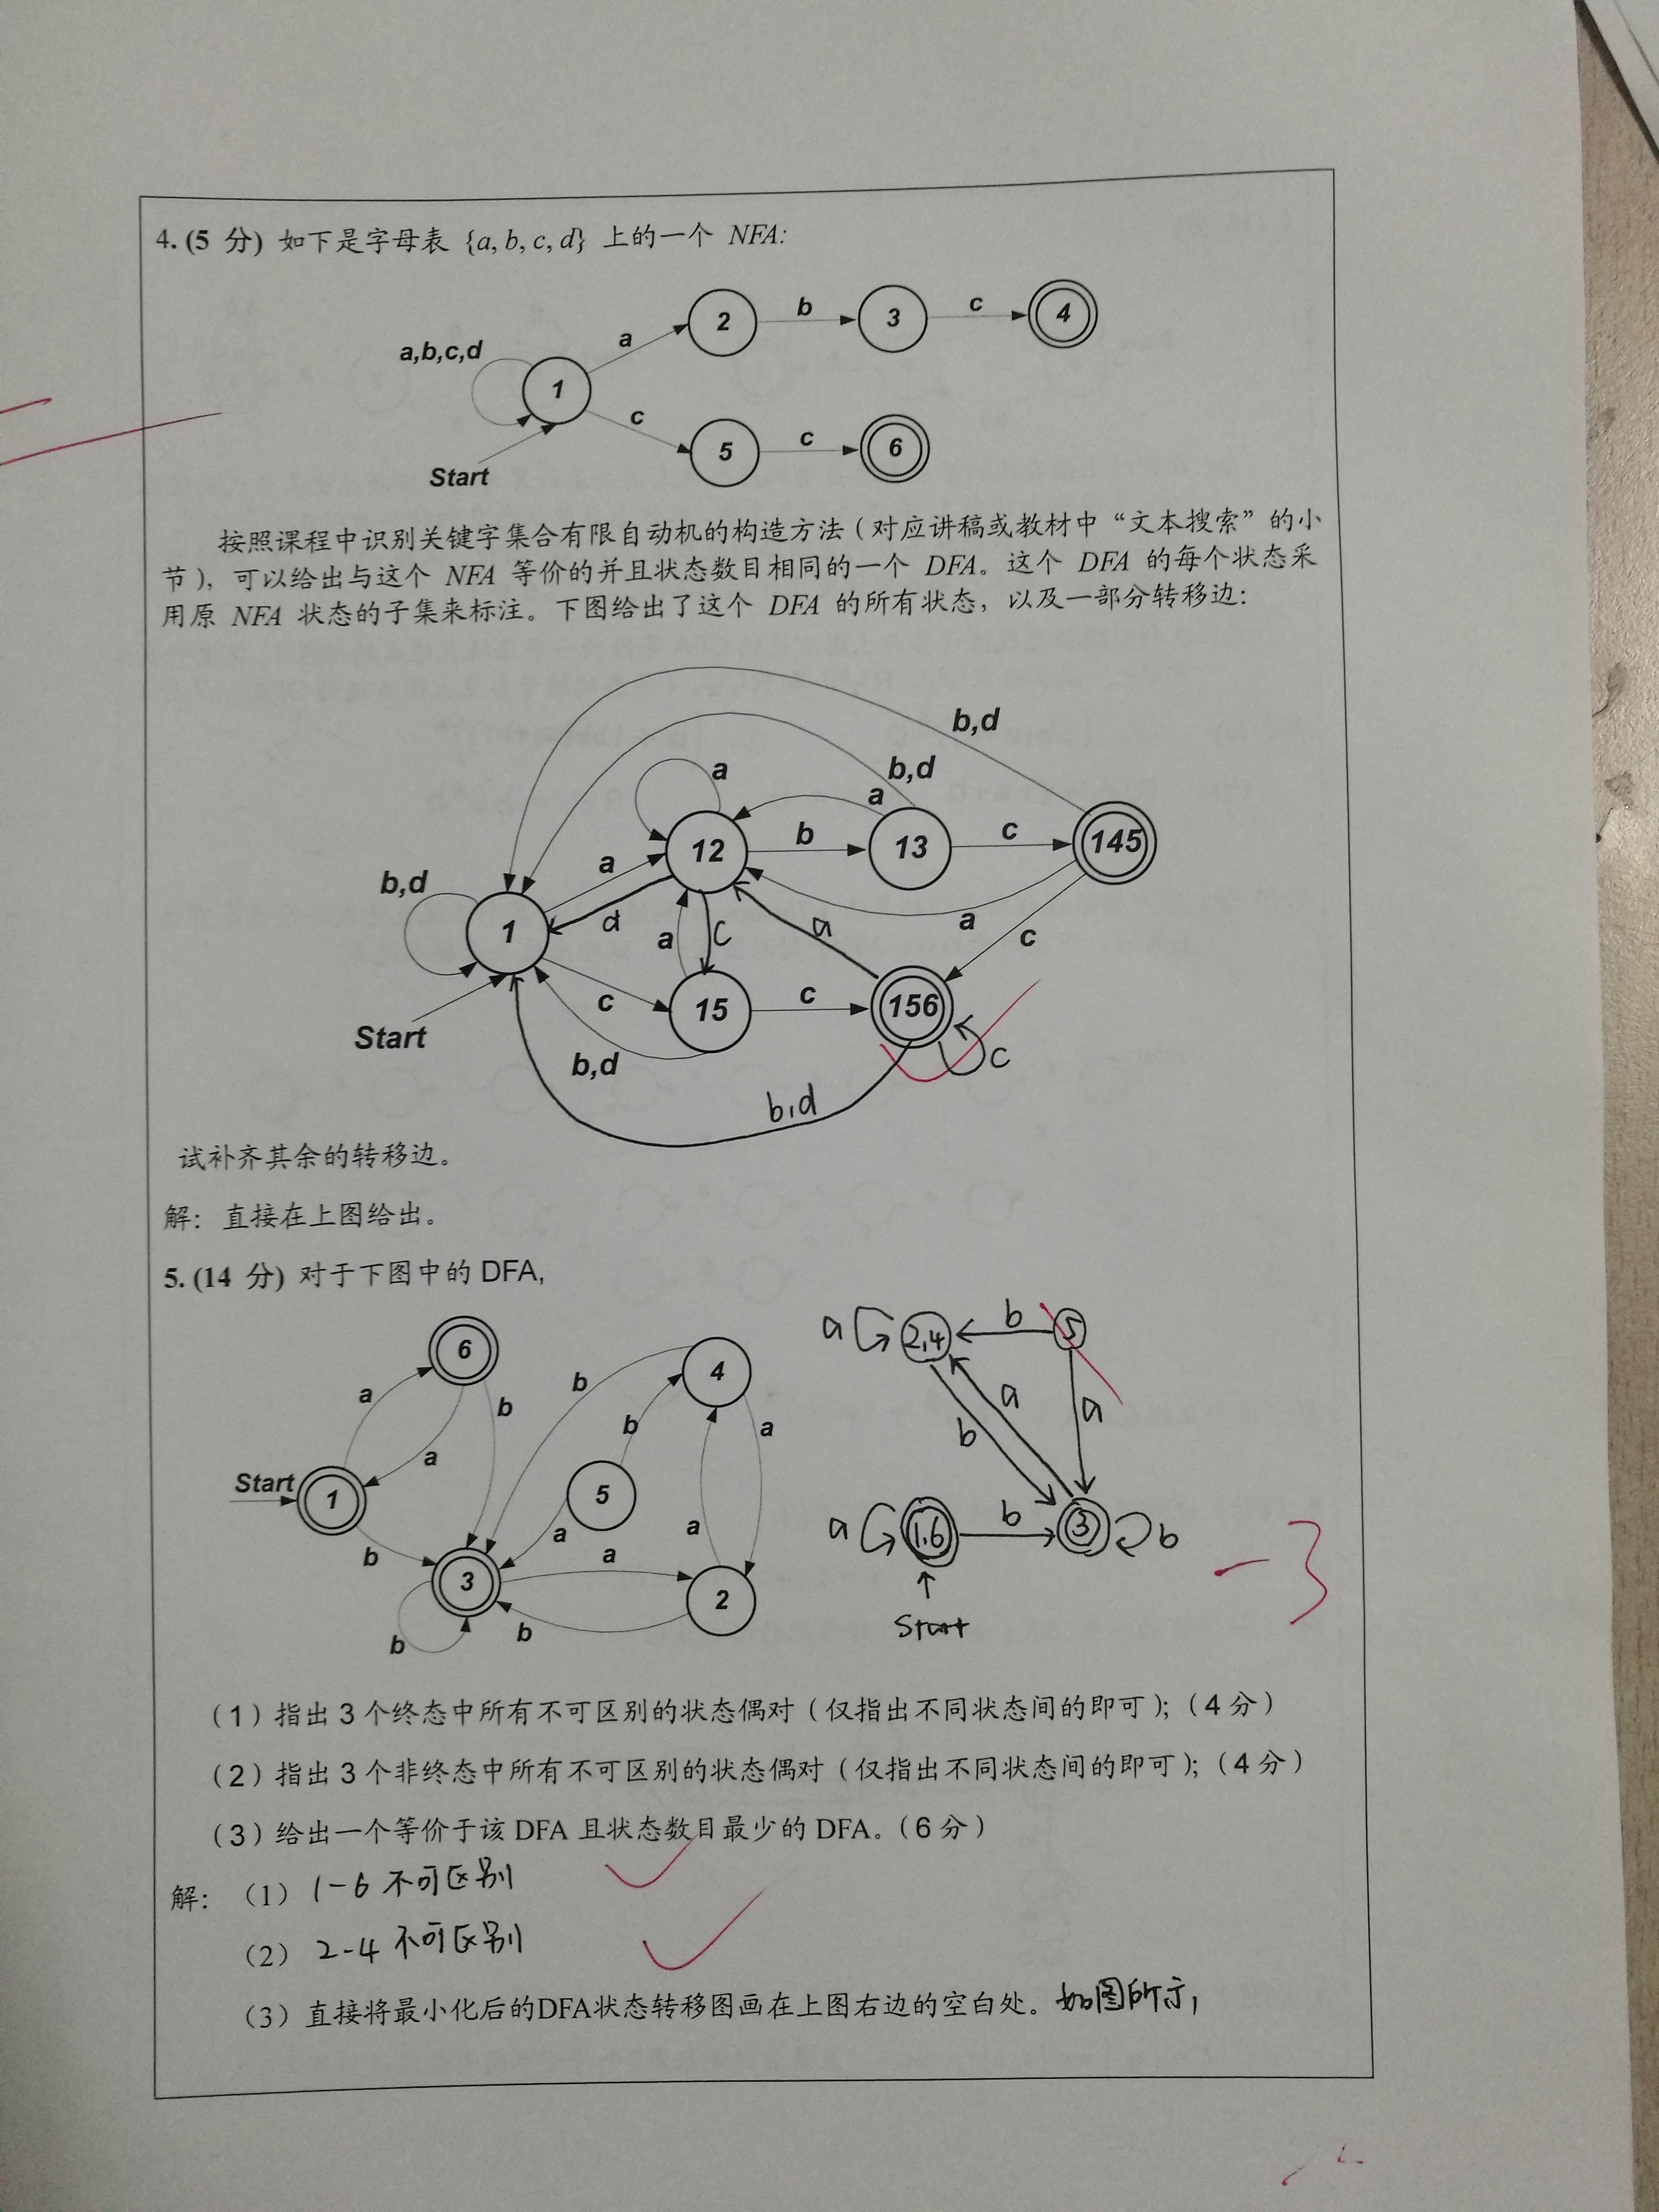 4. (5 分) 如下是字母表 {a, b, c, d} 上的一个 NFA:
a,b,c,d
1
a
2
b
3
c
4
c
5
c
6
Start
按照课程中识别关键字集合有限自动机的构造方法（对应讲稿或教材中“文本搜索”的小
节），可以给出与这个 NFA 等价的并且状态数目相同的一个 DFA。这个 DFA 的每个状态采
用原 NFA 状态的子集来标注。下图给出了这个 DFA 的所有状态，以及一部分转移边：
b,d
b,d
a
a
12
b
13
c
145
b,d
a
1
d
a
c
a
a
c
c
15
c
156
c
Start
b,d
b,d
试补齐其余的转移边。
解： 直接在上图给出。
5. (14 分) 对于下图中的 DFA,
6
a
b
a
b
4
b
a
5
Start
1
b
a
a
a
3
2
b
b
a
2,4
b
5
b
a
a
a
1,6
b
3
b
Start
-3
（1）指出 3 个终态中所有不可区别的状态偶对（仅指出不同状态间的即可）；（4 分）
（2）指出 3 个非终态中所有不可区别的状态偶对（仅指出不同状态间的即可）；（4 分）
（3）给出一个等价于该 DFA 且状态数目最少的 DFA。（6 分）
解： （1） 1-6 不可区别
（2） 2-4 不可区别
（3）直接将最小化后的DFA状态转移图画在上图右边的空白处。如图所示,